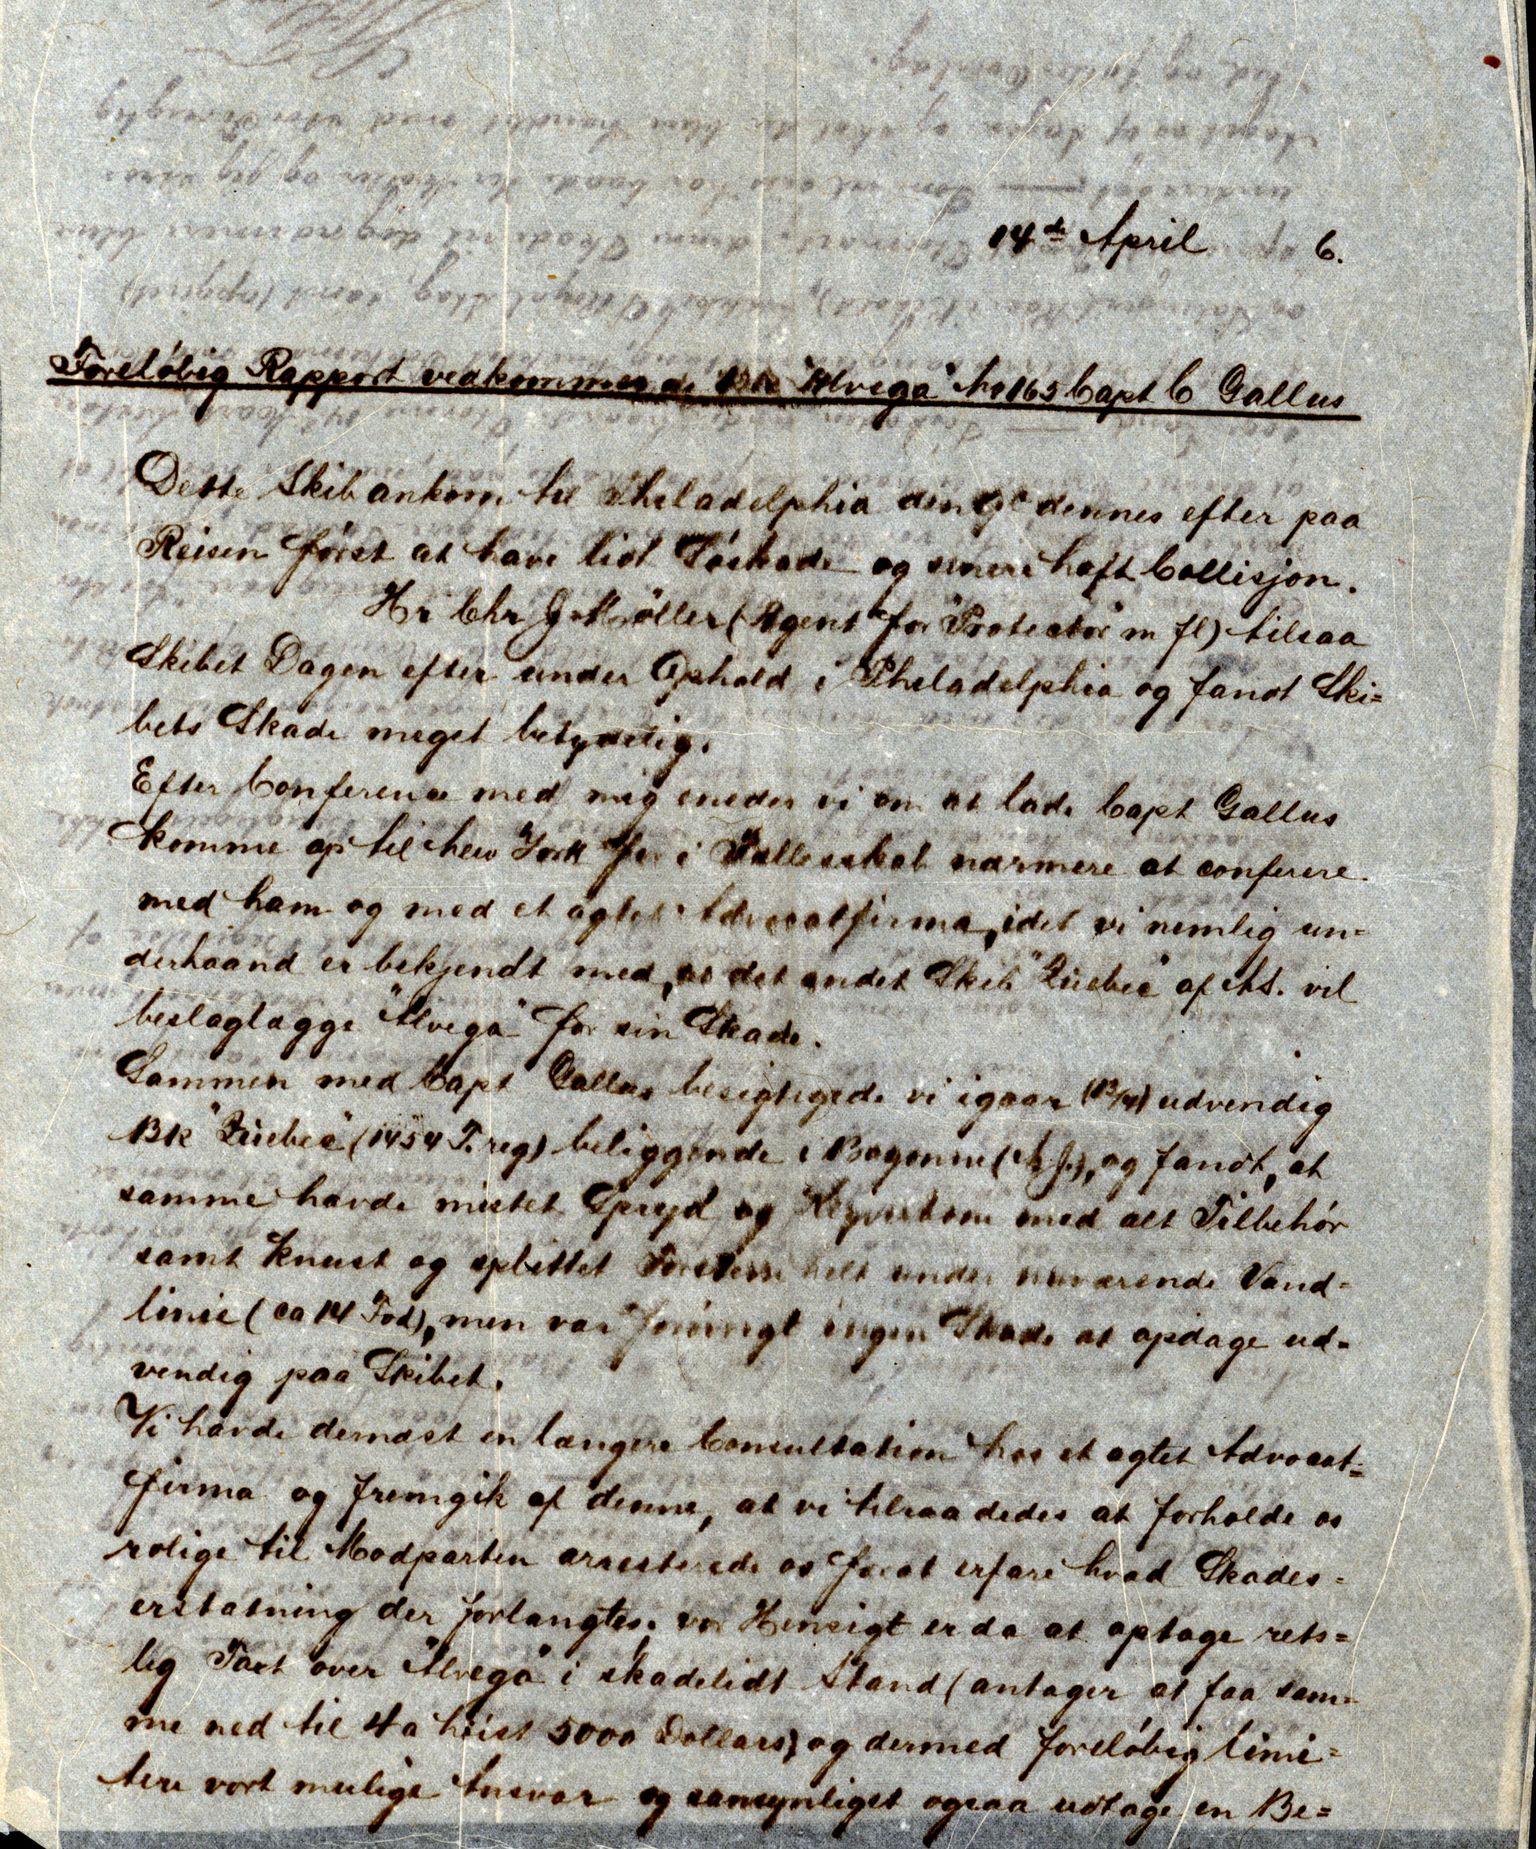 14de April 6.
Foreløbig Rapport vedkommende Bk "Alvega" No 165 Capt C Gallus
Dette Skib ankom til Philadelphia den 9de dennes efter paa
Reisen først at have lidt Søskade og senere haft Collisjon.
Hr Chr J Møller (Agent for "Protector" m fl) tilsaa
Skibet Dagen efter under Ophold i Philadelphia og fandt Ski=
bets Skade meget betydelig.
Efter Conference med mig enedes vi om at lade Capt Gallus
komme op til New York for i Fællesskab nærmere at conferere
med ham og med et agtet Advocatfirma, idet vi nemlig un=
derhaand er bekjendt med, at det andet Skib "Quebec" af vil
beslaglægge "Alvega" for sin Skade.
Sammen med Capt Gallus besigtigede vi igaar (13/4) udvendig
Bk "Quebec" (1454 T. reg) beliggende i Bayonne (N.J.), og fandt, at
samme havde mistet Spryd og med alt Tilbehør
samt knust og splittet helt under nuværende Vand=
linie (ca 14 Fod), men var forøvrigt ingen Skade at opdage ud=
vendig paa Skibet.
Vi havde dernæst en længere Consultation hos et agtet Advocat=
firma og fremgik af denne, at vi tilraadedes at forholde os
rolige til Modparten arresterede os forat erfare hvad Skades=
erstatning der forlangtes. vor Hensigt er da at optage rets=
lig Taxt over "Alvega" i skadelidt Stand (antager at faa sam=
me ned til 4 a høist 5000 Dollars) og dermed foreløbig limi=
tere vort mulige Ansvar og sansynligst ogsaa udtage en Be=